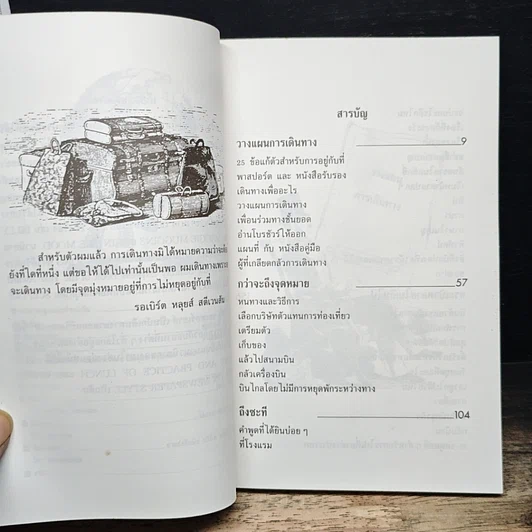 สำหรับตัวผมแล้ว การเดินทางมิได้หมายความว่าจะต้อง
ยังที่ใดที่หนึ่ง แต่ขอให้ได้ไปเท่านั้นเป็นพอ ผมเดินทางเพราะ
จะเดินทาง โดยมีจุดมุ่งหมายอยู่ที่การ ไม่หยุดอยู่กับที่
รอเบิร์ต หลุยส์ สตีเวนสัน
สารบัญ
วางแผนการเดินทาง 9
25 ข้อแก้ตัวสำหรับการอยู่กับที่
พาสปอร์ต และ หนังสือรับรอง
เดินทางเพื่ออะไร
วางแผนการเดินทาง
เพื่อนร่วมทางชั้นยอด
อ่านโบรชัวร์ให้ออก
แผนที่ กับ หนังสือคู่มือ
ผู้ที่เกลียดกลัวการเดินทาง
กว่าจะถึงจุดหมาย 57
หนทางและวิธีการ
เลือกบริษัทตัวแทนการท่องเที่ยว
เตรียมตัว
เก็บของ
แล้วไปสนามบิน
กลัวเครื่องบิน
บินไกลโดยไม่มีการหยุดพักระหว่างทาง
ถึงซะที 104
คำพูดที่ได้ยินบ่อย ๆ
ที่โรงแรม